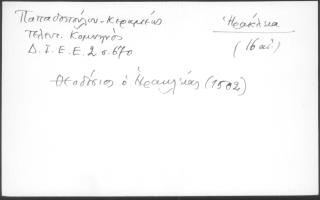 Παπαδοπούλου-Κεραμέως
Τελευτ. Κομνηνός
Δ.Ι.Ε.Ε. 2 σ. 670
Ἡράκλεια
(16 αἰ.)
Θεοδόσιος ὁ Ἡρακλείας (1502)